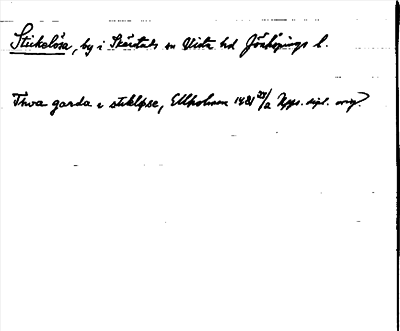 Stickelösa, by i Skärstads sn Vista hd Jönköpings l.
Thva garda i stikløse, Ellholmen 1481 28/2 Upps. dipl. orig.